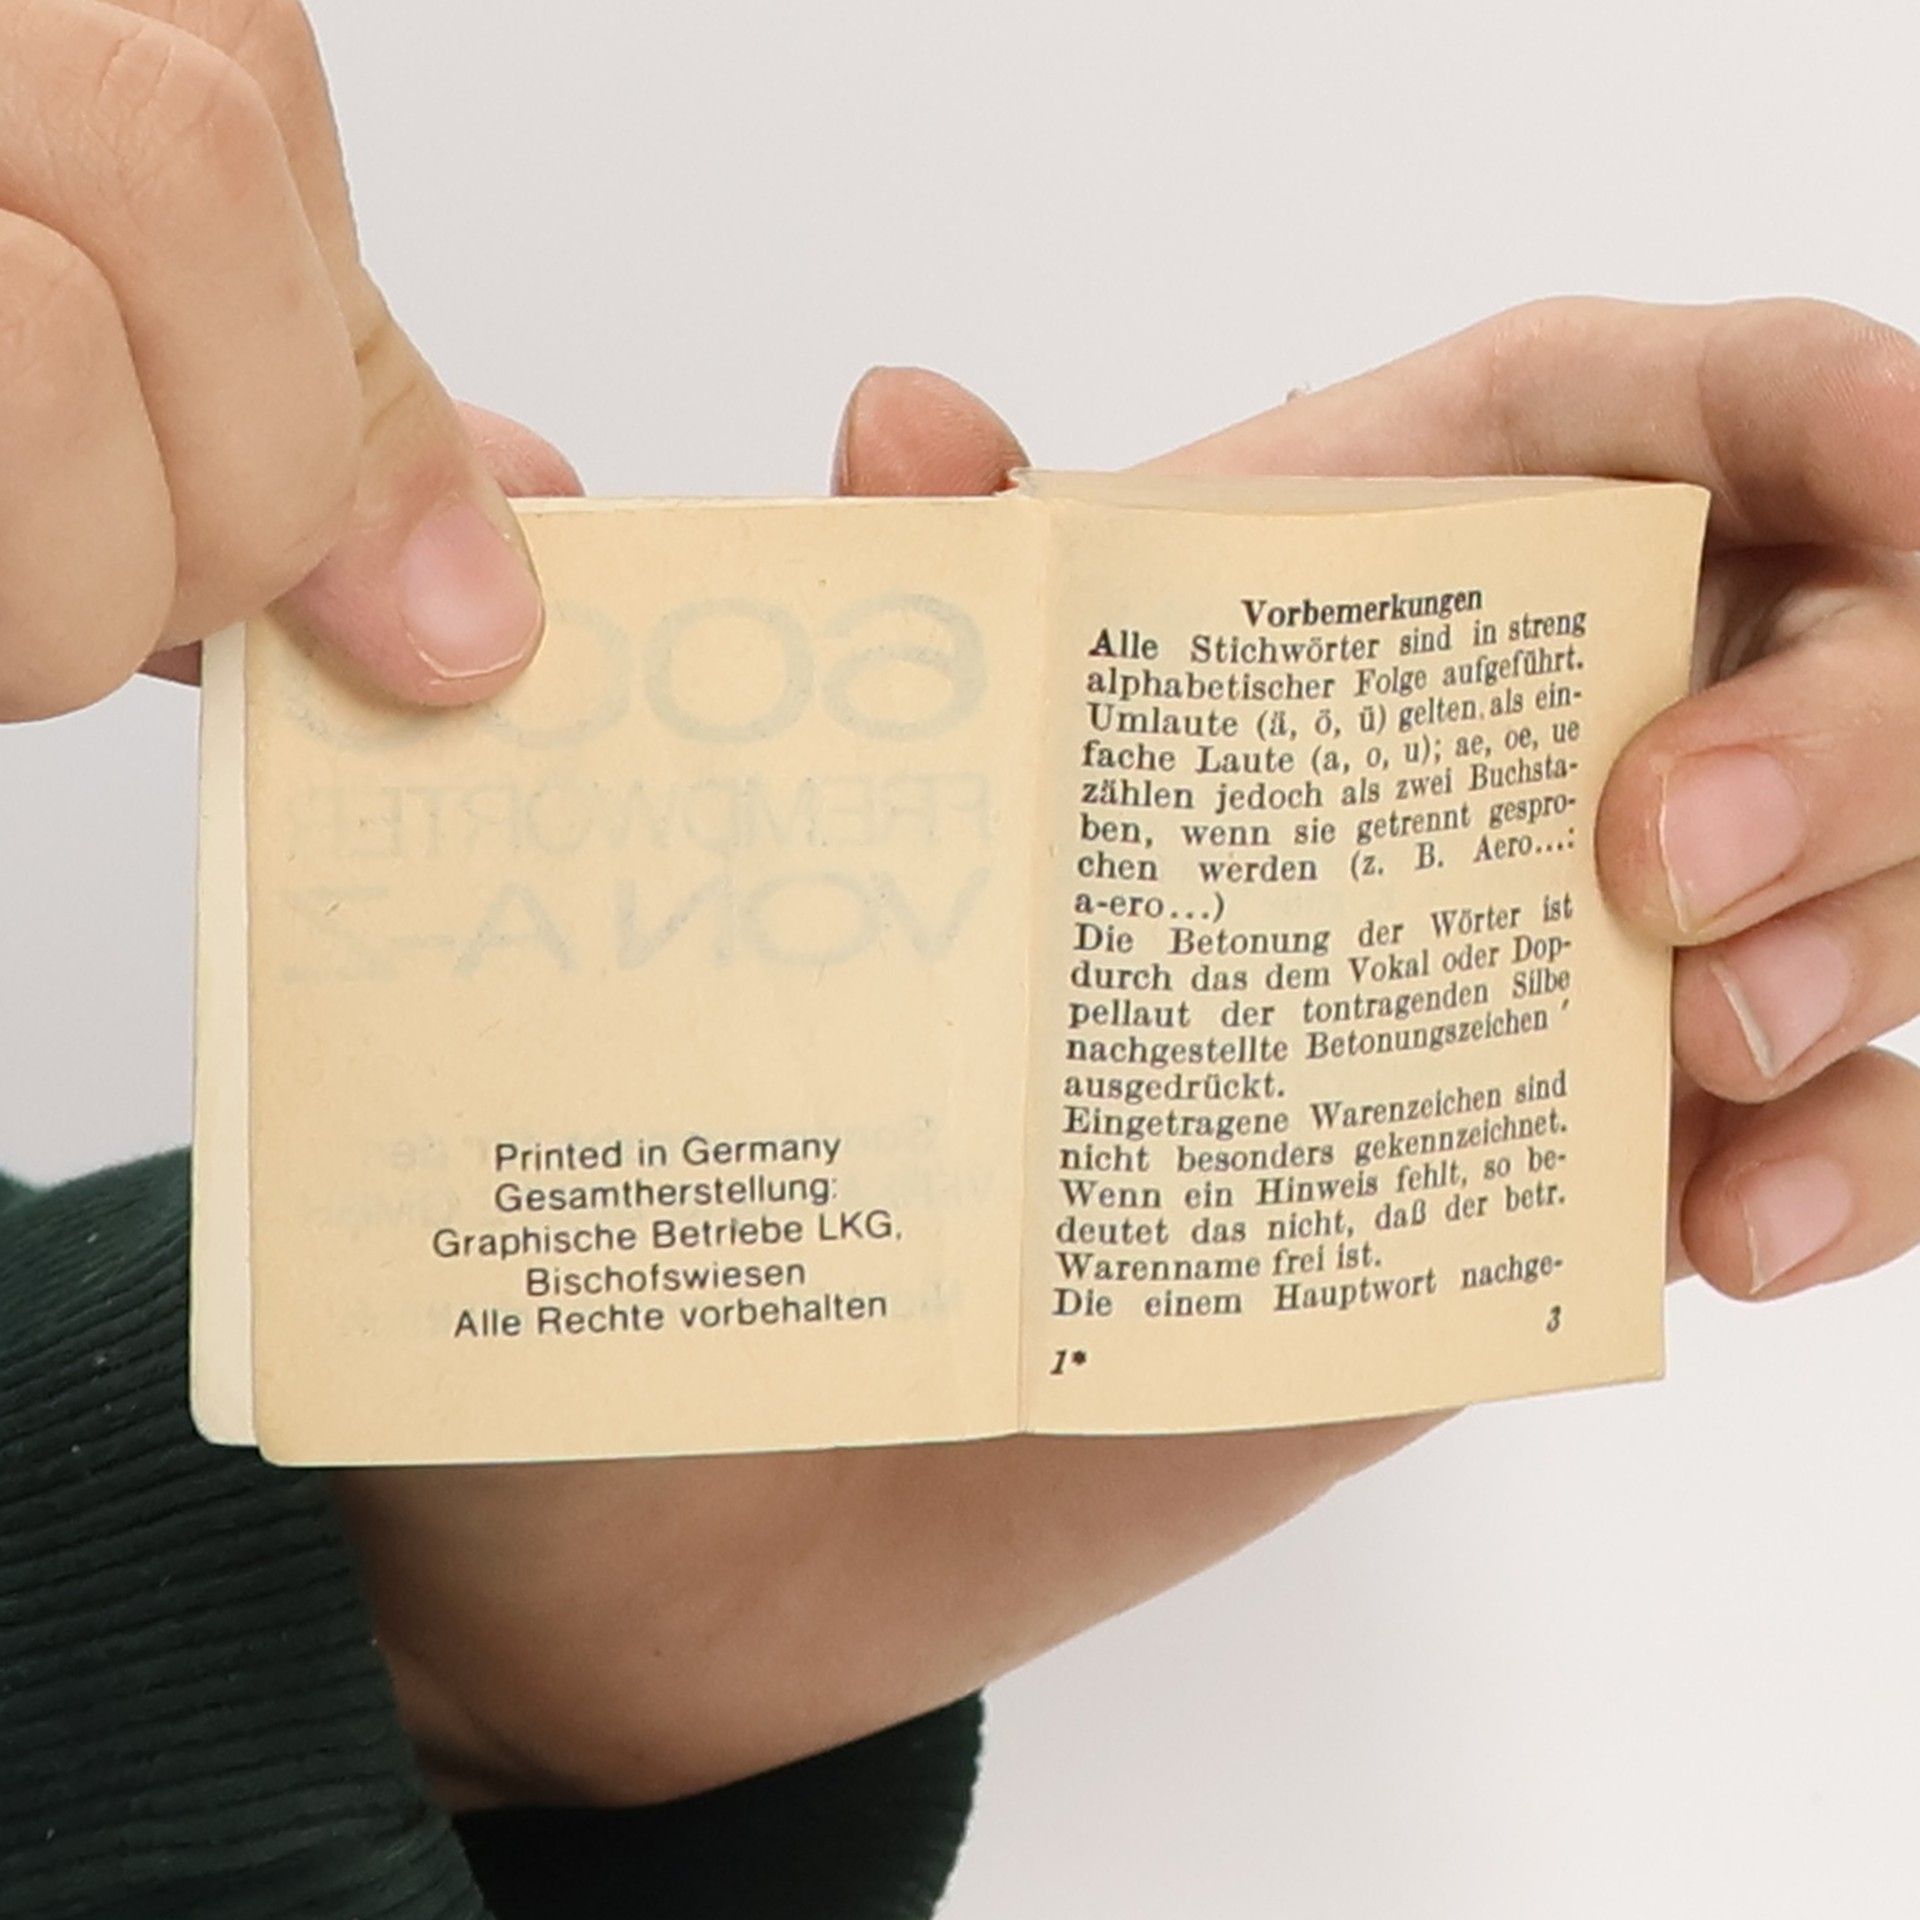 Printed in Germany
Gesamtherstellung:
Graphische Betriebe LKG,
Bischofswiesen
Alle Rechte vorbehalten
Vorbemerkungen
Alle Stichwörter sind in streng
alphabetischer Folge aufgeführt.
Umlaute (ä, ö, ü) gelten als ein-
fache Laute (a, o, u); ae, oe, ue
zählen jedoch als zwei Buchsta-
ben, wenn sie getrennt gespro-
chen werden (z. B. Aero...:
a-ero...)
Die Betonung der Wörter ist
durch das dem Vokal oder Dop-
pellaut der tontragenden Silbe
nachgestellte Betonungszeichen ′
ausgedrückt.
Eingetragene Warenzeichen sind
nicht besonders gekennzeichnet.
Wenn ein Hinweis fehlt, so be-
deutet das nicht, daß der betr.
Warenname frei ist.
Die einem Hauptwort nachge-
3
1*